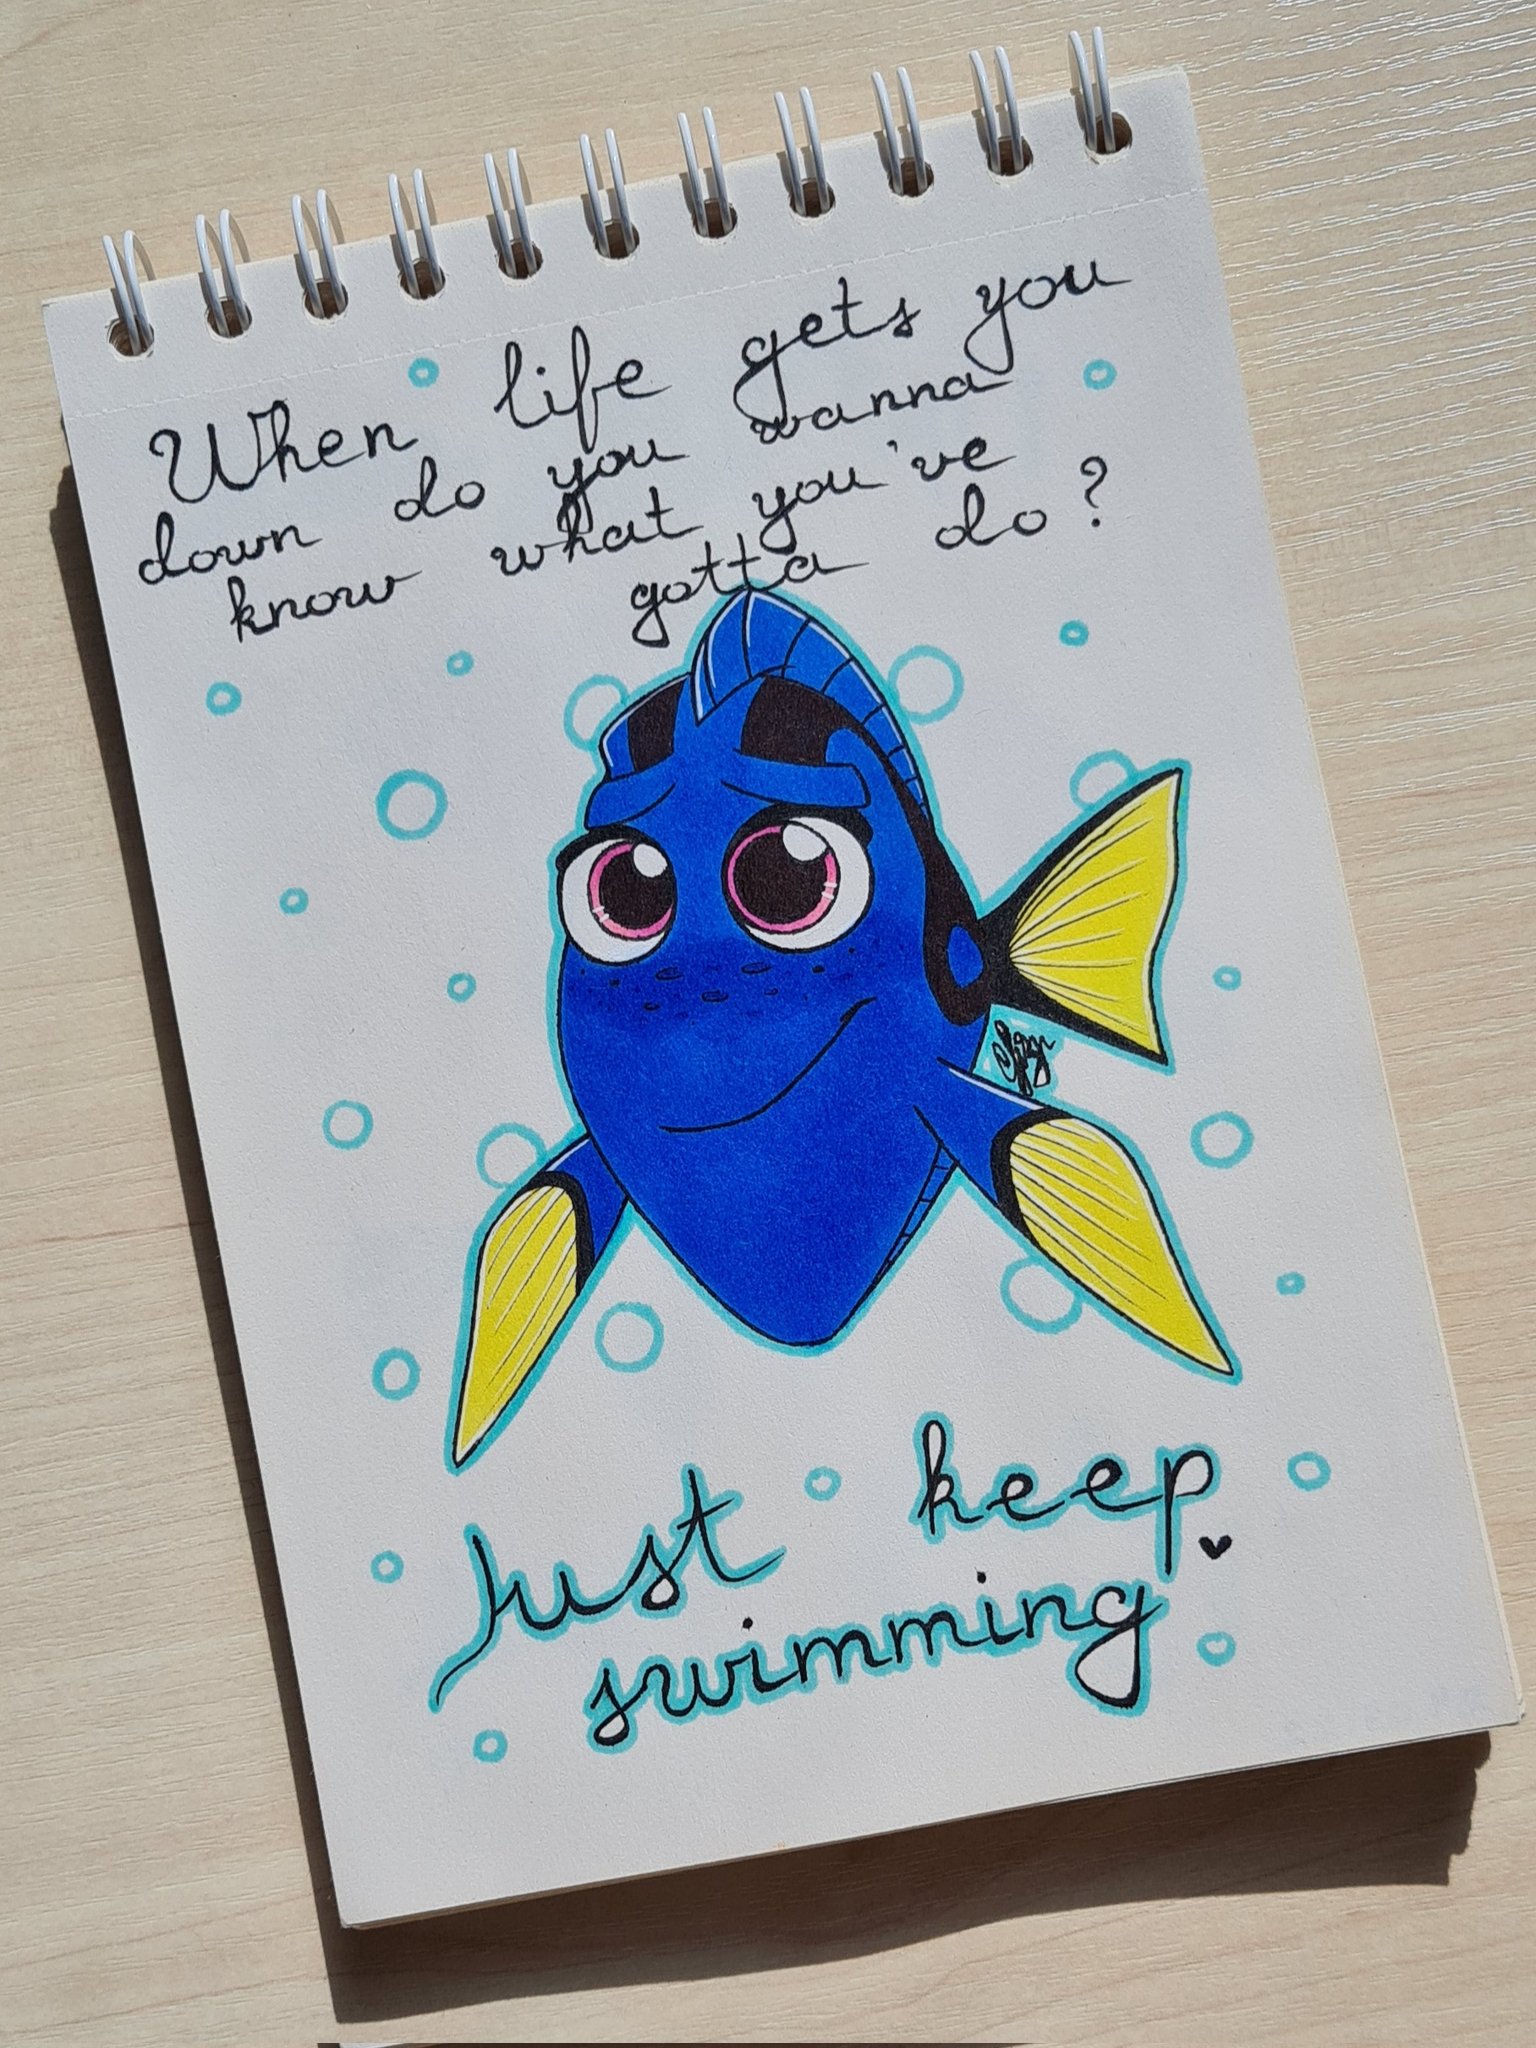 When life gets you
down do you wanna
know what you've
gotta do?
Just keep
swimming